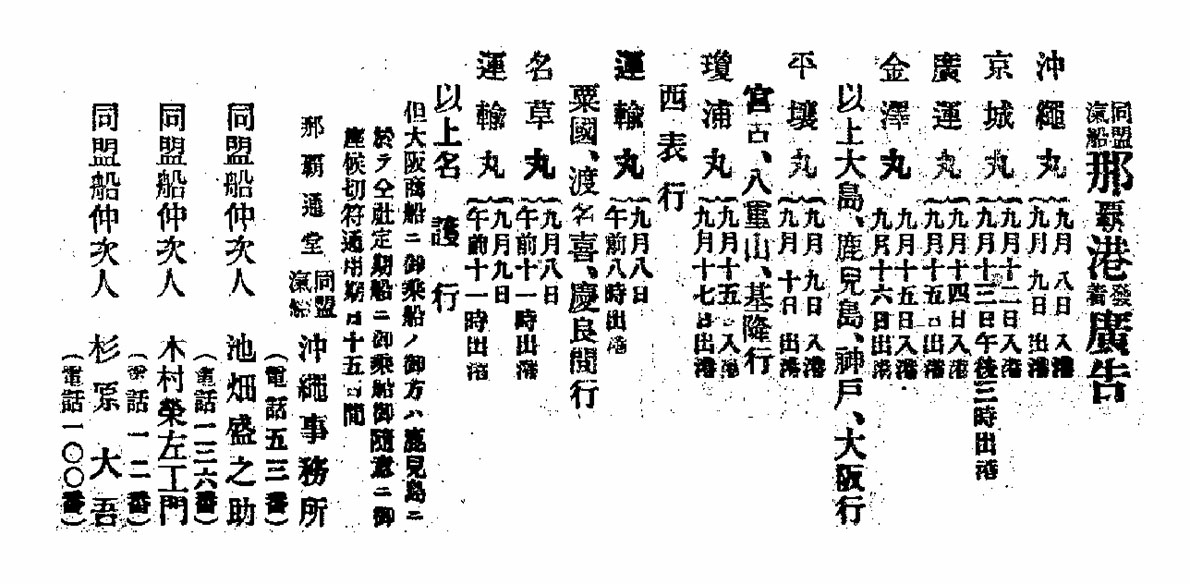 同盟汽船那覇港發着廣告
沖繩丸 九月八日入港 九月九日出港
京城丸 九月十二日入港 九月十三日午後三時出港
廣運丸 九月十四日入港 九月十五日出港
金澤丸 九月十五日入港 九月十六日出港
以上大島、鹿兒島、神戸、大阪行
平壤丸 九月九日入港 九月十日出港
宮古、八重山、基隆行
瓊浦丸 九月十五日入港 九月十七日出港
西表行
運輸丸 九月八日午前八時出港
粟國、渡名喜、慶良間行
名草丸 九月八日午前十一時出港
運輸丸 九月九日午前十一時出港
以上名護行
但大阪商船ニ御乘船ノ御方ハ鹿兒島ニ
於テ仝社定期船ニ御乘船御隨意ニ御
座候切符通用期日十五日間
那覇通堂
同盟汽船 沖繩事務所
(電話五三番)
同盟船仲次人 池畑盛之助
(電話一三六番)
同盟船仲次人 木村榮左工門
(電話一二番)
同盟船仲次人 杉原大吾
(電話一〇〇番)